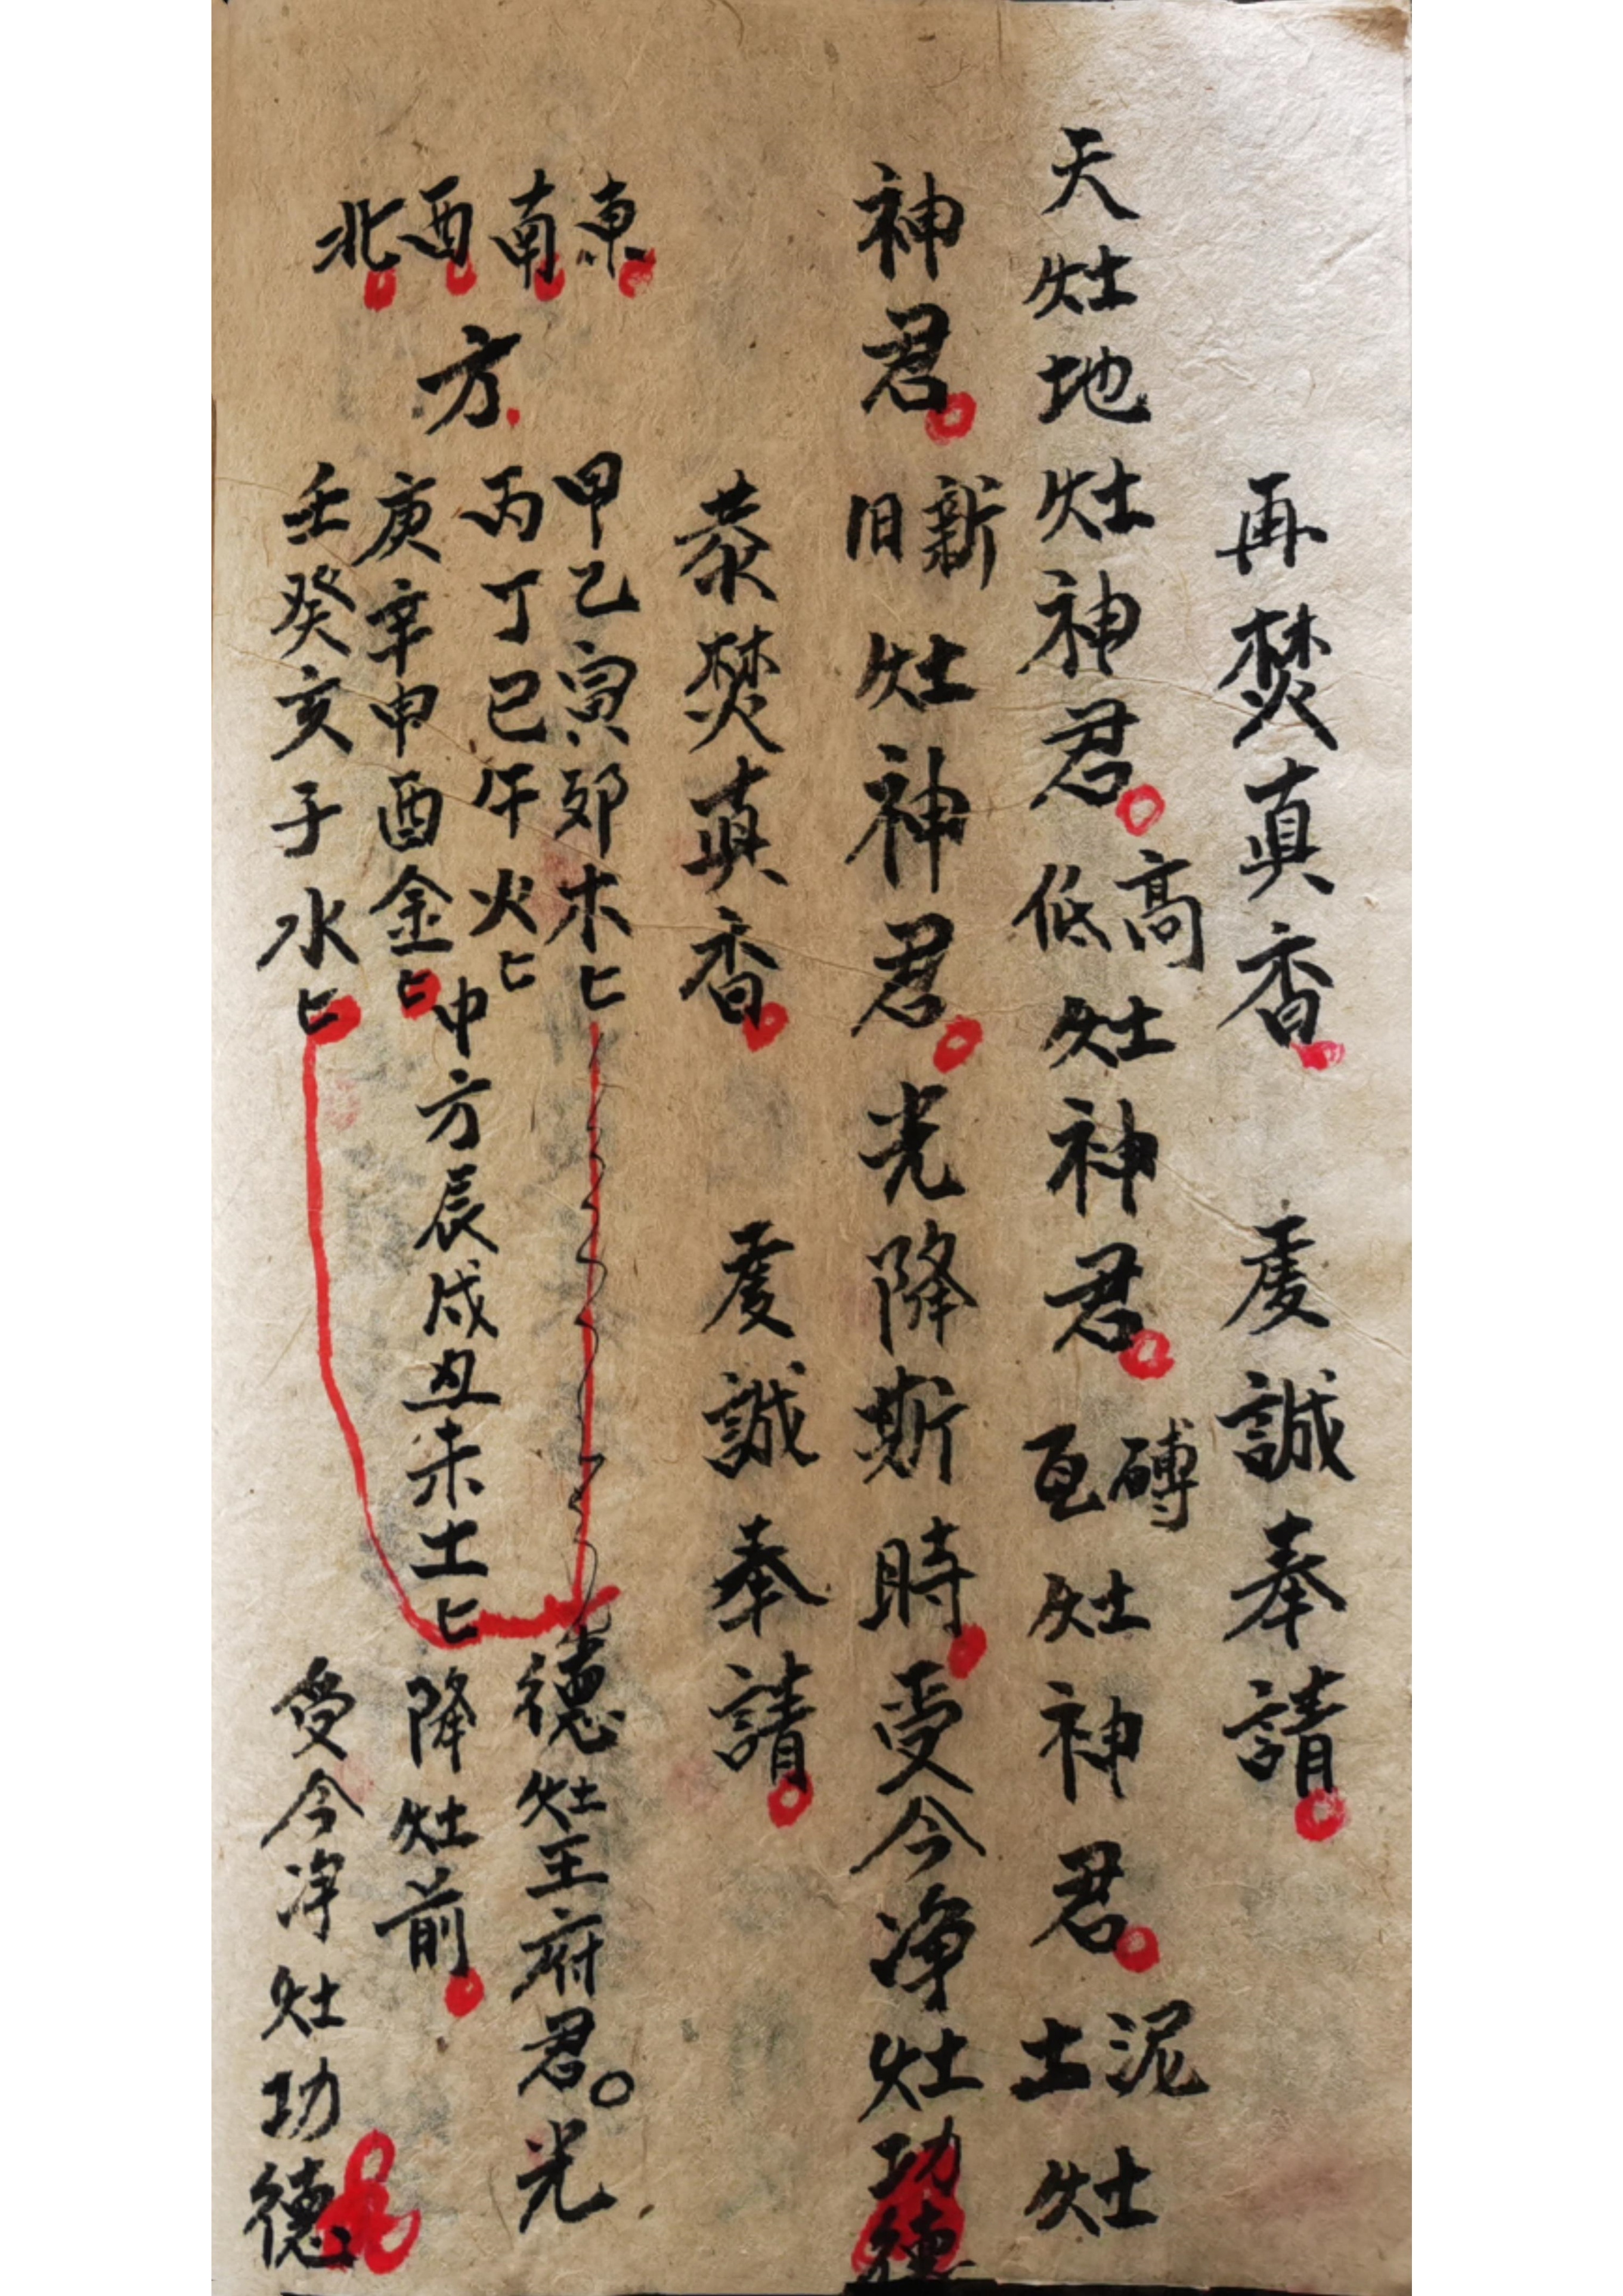 再焚真香。 虔誠奉請。
天灶地灶神君。高低灶神君。磚瓦灶神君。泥土灶
神君。新旧灶神君。光降斯時。受今净灶功德
恭焚真香。 虔誠奉請。
東南西北方
甲乙寅卯木匕
丙丁巳午火匕
庚辛申酉金匕
壬癸亥子水匕
中方辰戌丑未土匕
德灶王府君。光
降灶前。
受今净灶功德